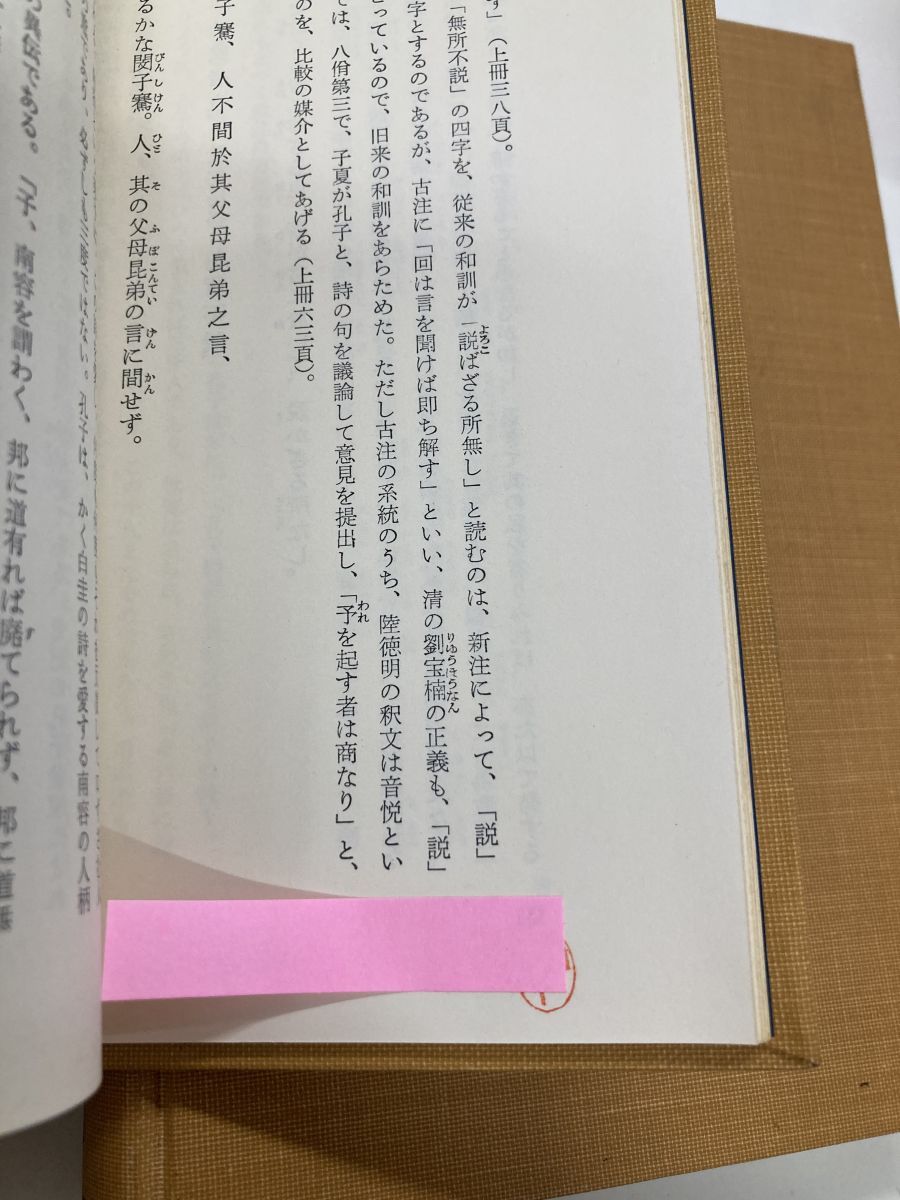 す」（上冊三八頁）。
「無所不説」の四字を、従来の和訓が「説ばざる所無し」と読むのは、新注によって、「説」
字とするのであるが、古注に「回は言を聞けば即ち解す」といい、清の劉宝楠の正義も、「説」
とっているので、旧来の和訓をあらためた。ただし古注の系統のうち、陸徳明の釈文は音悦とい
では、八佾第三で、子夏が孔子と、詩の句を議論して意見を提出し、「予を起す者は商なり」と、
のを、比較の媒介としてあげる（上冊六三頁）。
子騫、人不間於其父母昆弟之言、
るかな閔子騫。人、其の父母昆弟の言に間せず。
三度ではない。孔子は、かく白圭の詩を愛する南容の人柄
である。「子、南容を謂わく、邦に道有れば廃てられず、邦に道